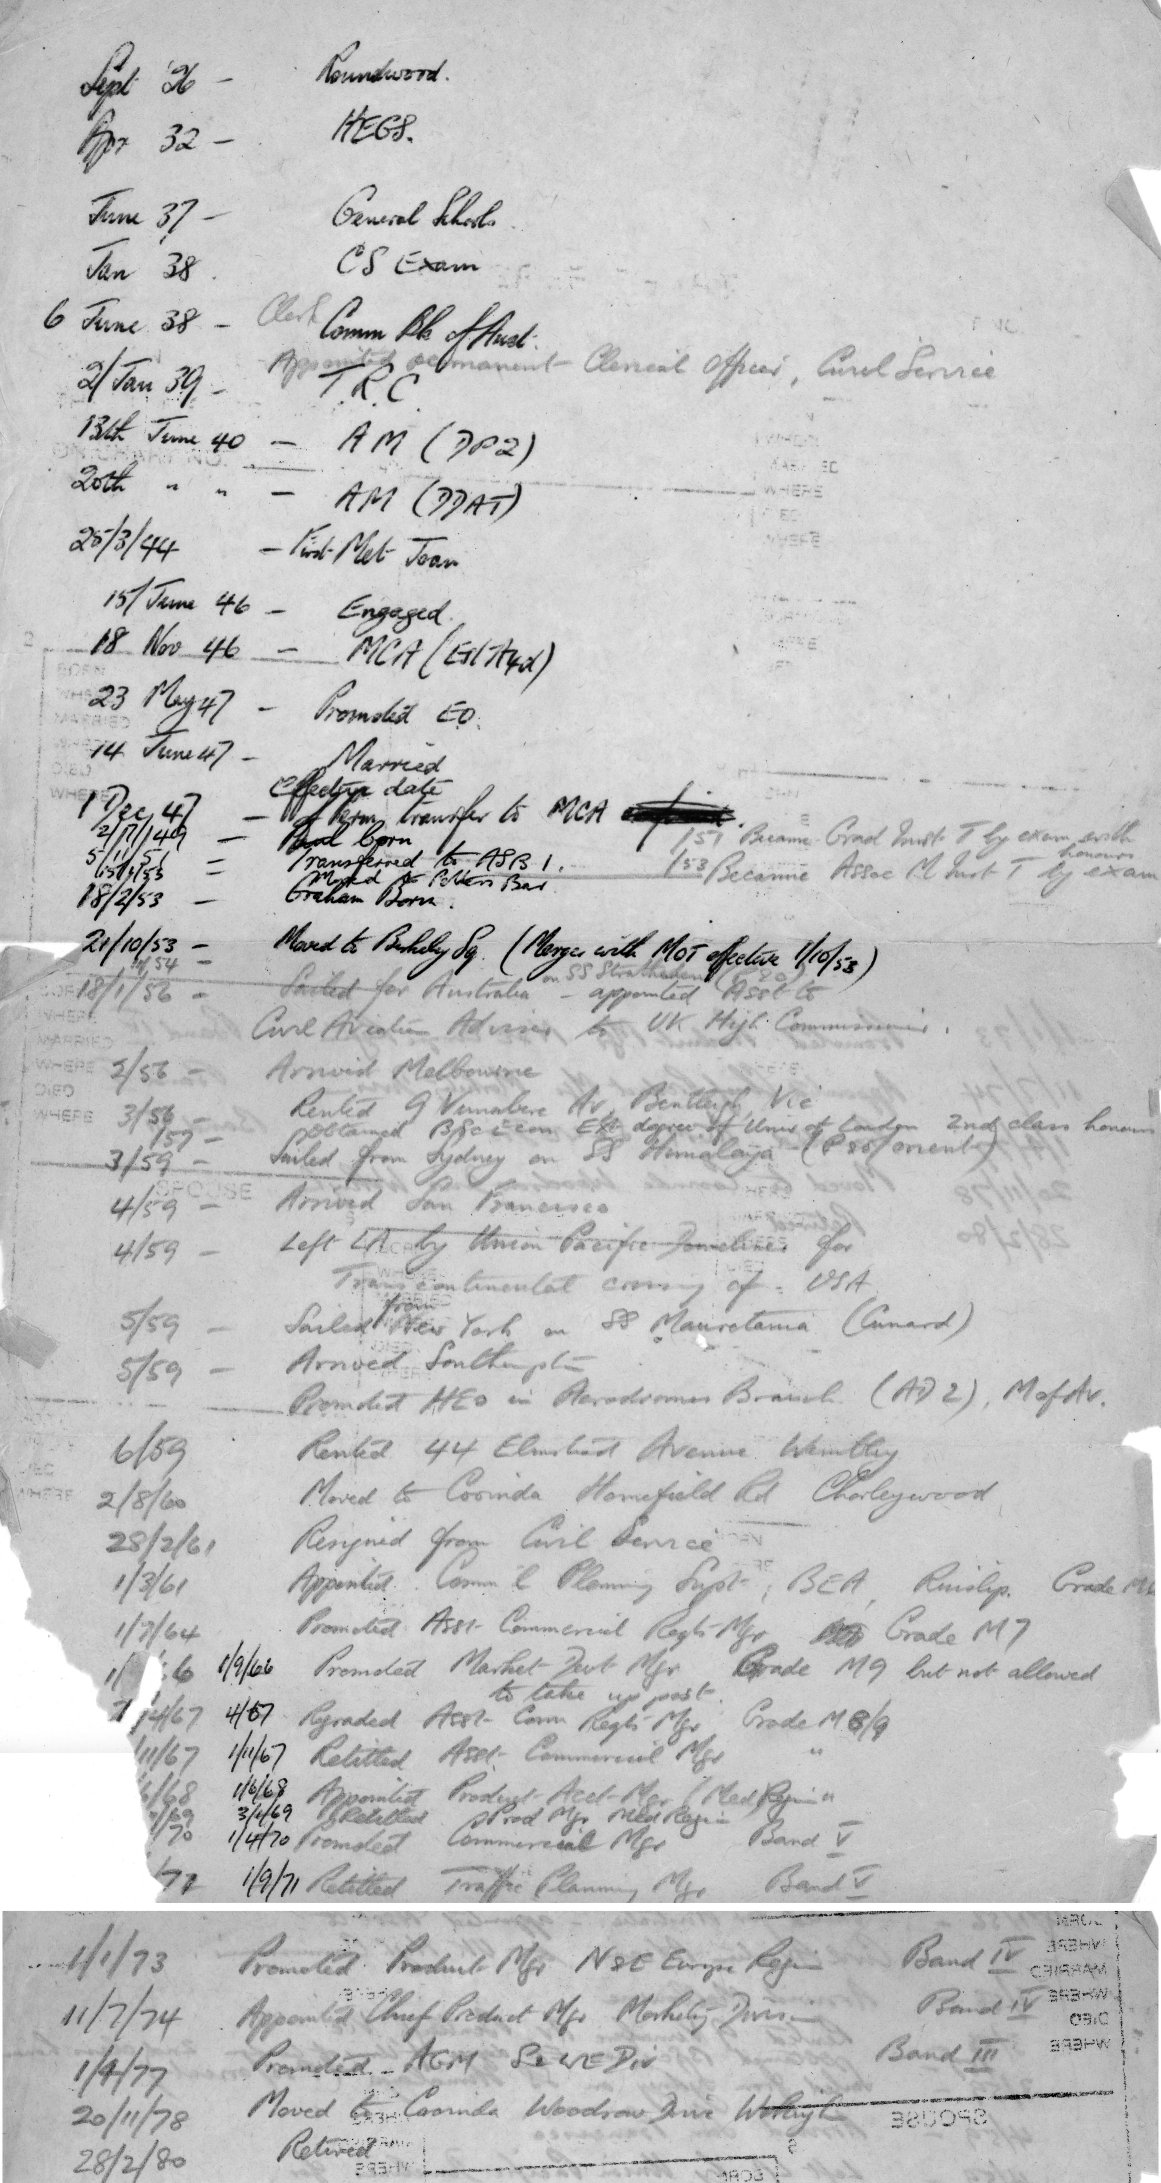 Sept '26 - Roundwood.
Apr 32 - HEGS.
June 37 - General Schools.
Jan 38. CS Exam
6 June 38 - Clerk Comm Bk of Aust.
Appointed permanent Clerical Officer, Civil Service
2/Jan 39 - T.R.C
13th June 40 - AM (DP2)
20th " " - AM (DDAT)
25/3/44 - First Met Joan
15/June 46 - Engaged.
18 Nov 46 - MCA (Est A4d)
23 May 47 - Promoted EO.
14 June 47 - Married
effective date
1 Dec 47 - of Perm transfer to MCA
2/11/49 - Paul born
/51 Became Grad Inst T by exam with honours
5/11/51 = Transferred to ASB 1.
/53 Became Assoc M Inst T by exam
Moved to Potters Bar
18/2/53 - Graham Born.
21/10/53 - Moved to Berkeley Sq. (Merger with MOT effective 1/10/53)
18/1/56 - Sailed for Australia on SS Strathedden (P&O) - appointed Asst to
Civil Aviation Adviser to UK High Commissioner.
2/56 - Arrived Melbourne
3/56 - Rented 9 Av, Bentleigh, Vic
/57 - Obtained BSc Econ Ext degree of Univ of London 2nd class honours
3/59 - Sailed from Sydney on SS Himalaya - (P&O/orient)
4/59 - Arrived San Francisco
4/59 - Left LA by Union Pacific Domeliner for
Transcontinental crossing of USA
5/59 - Sailed from New York on SS Mauretania (Cunard)
5/59 - Arrived Southampton
Promoted HEO in Aerodromes Branch (AD2), M of Av.
6/59 Rented 44 Elmstead Avenue Wembley
2/8/60 Moved to Coorinda Homefield Rd Chorleywood
28/2/61 Resigned from Civil Service
1/3/61 Appointed Comm'l Planning Supt, BEA, Ruislip. Grade M6
1/7/64 Promoted Asst Commercial Regts Mgr Grade M7
1/ 66 1/9/66 Promoted Market Devt Mgr Grade M9 but not allowed
to take up post.
/4/67 4/67 Regraded Asst Comm Regts Mgr Grade M8/9
/11/67 1/11/67 Retitled Asst Commercial Mgr "
/6/68 1/6/68 Appointed Product Acct Mgr (Med) Region "
/69 3/1/69 Retitled Prod Mgr Med Region
/70 1/4/70 Promoted Commercial Mgr Band V
/71 1/9/71 Retitled Traffic Planning Mgr Band V
1/1/73 Promoted Product Mgr N&E Europe Region Band IV
11/7/74 Appointed Chief Product Mgr Marketing Division Band IV
1/4/77 Promoted AGM S& WE Div Band III
20/11/78 Moved to Coorinda Woodrow Drive Wokingham
28/2/80 Retired
SPOUSE
BORN
WHERE
MARRIED
WHERE
DIED
WHERE
SPOUSE